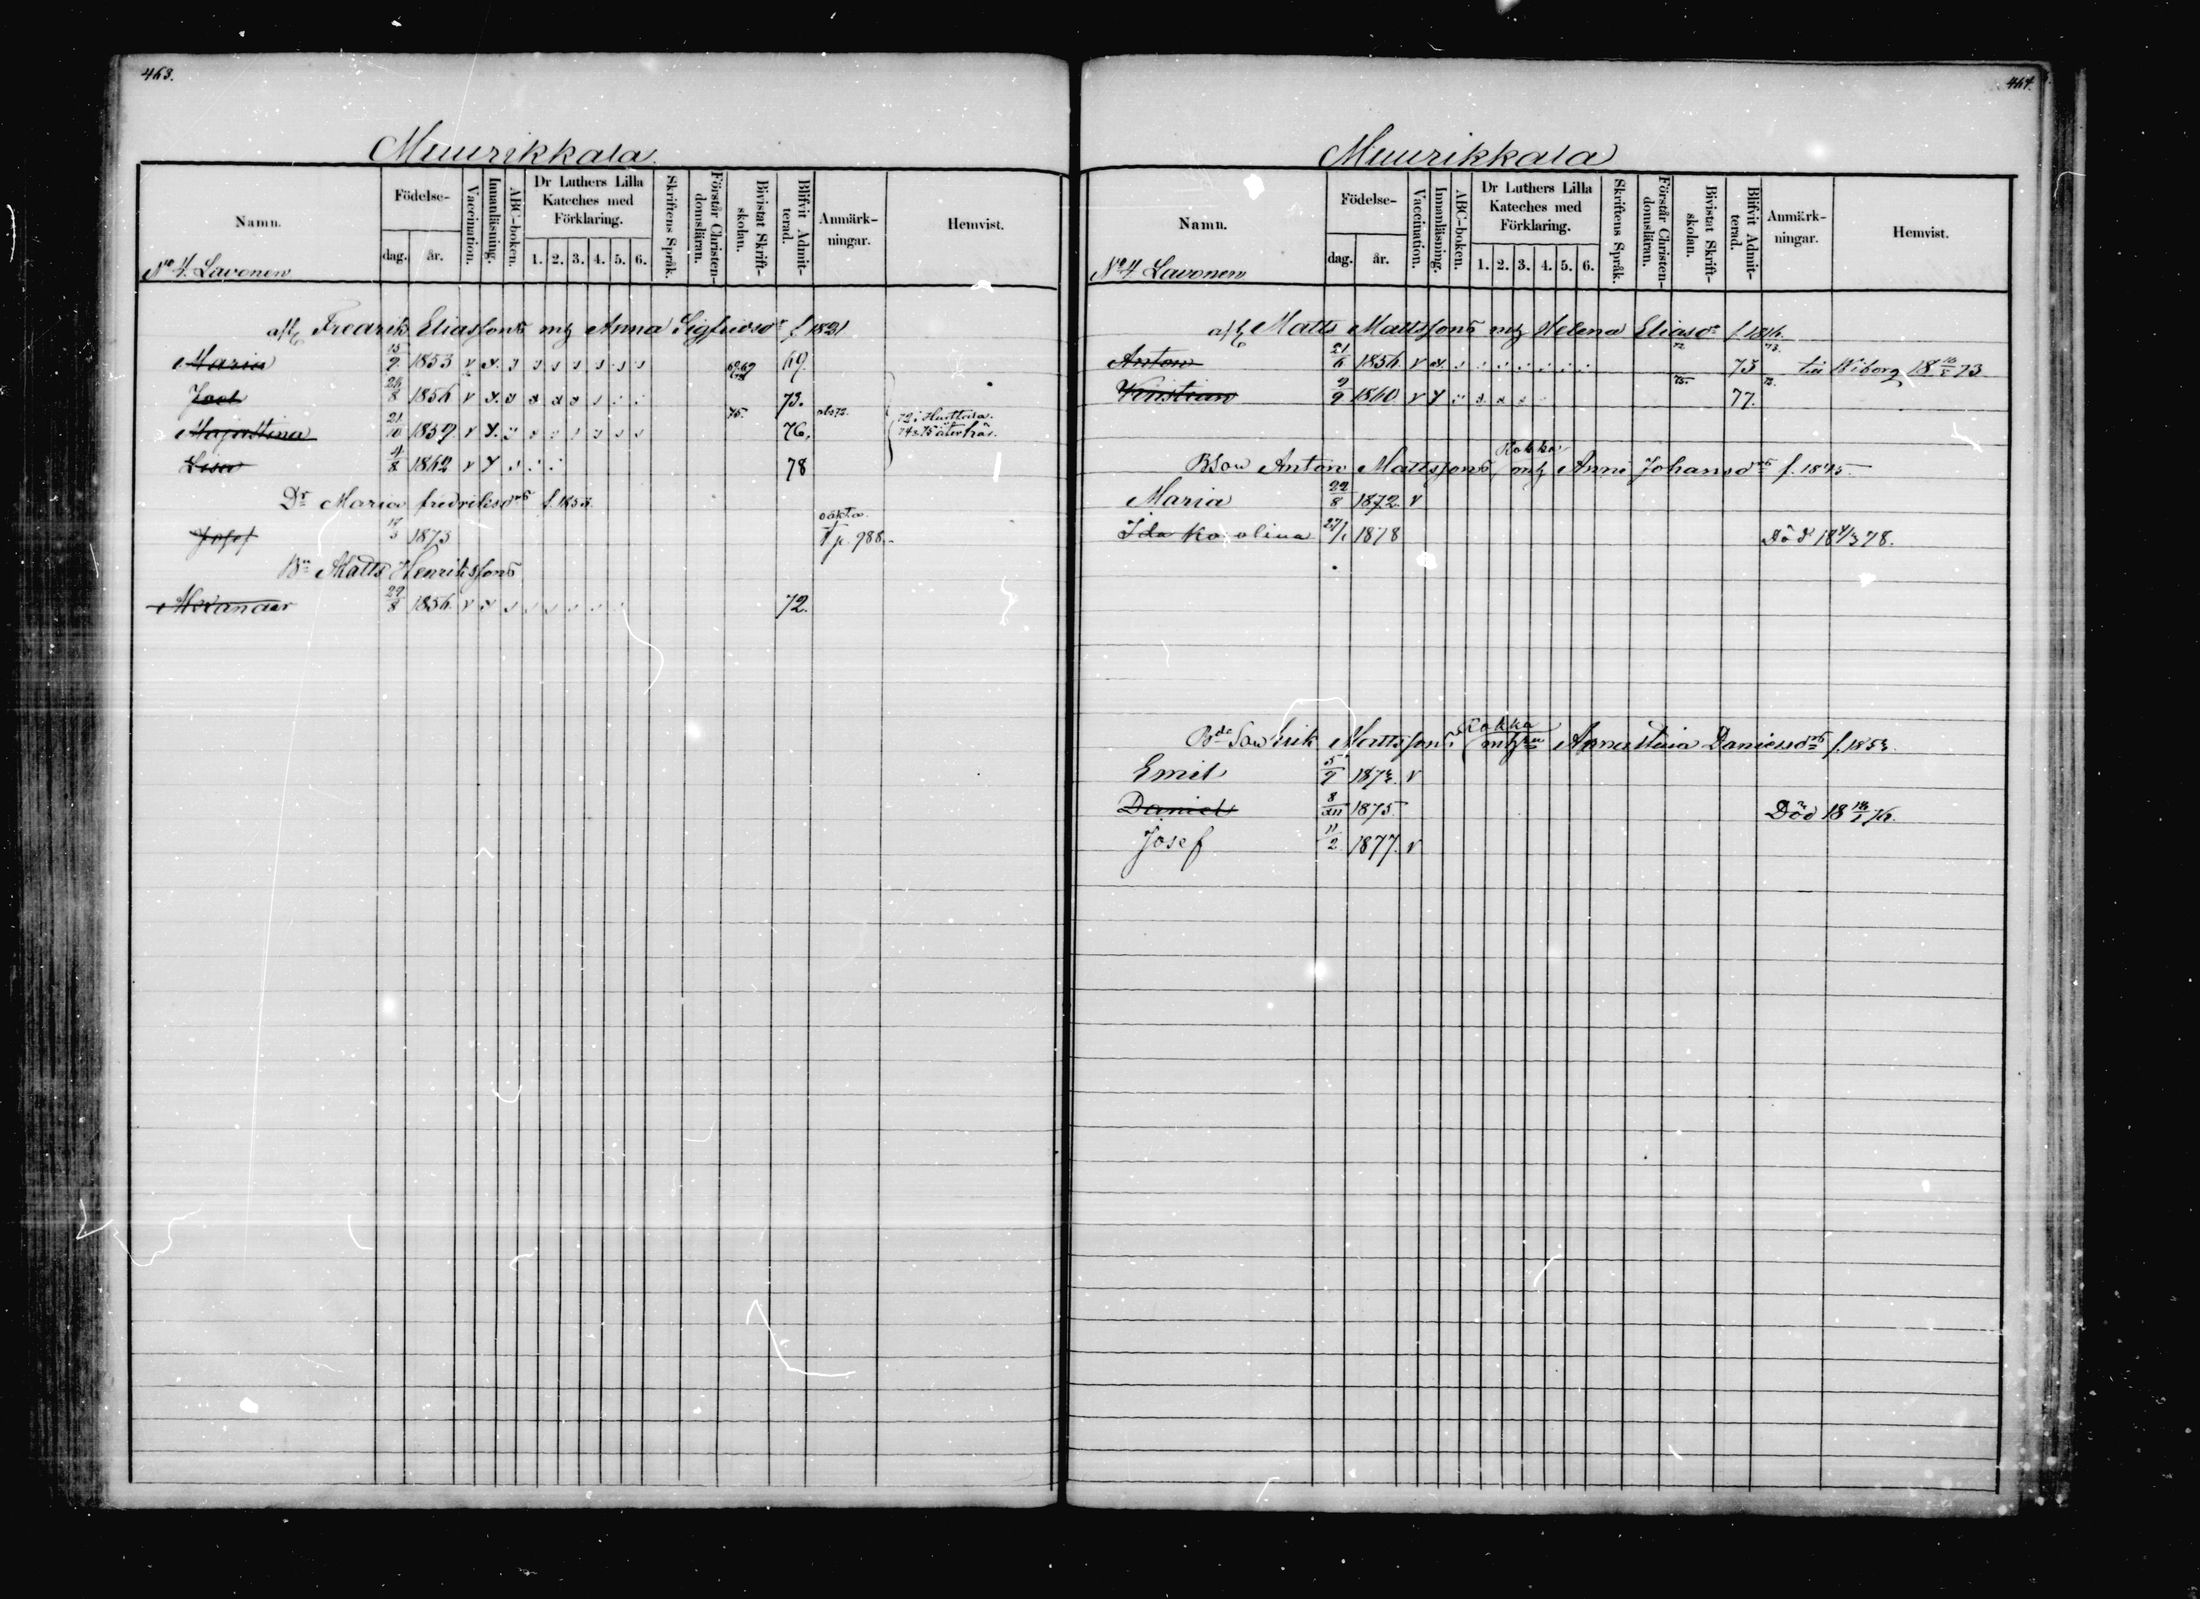 463.
Muurikkala
Namn.
Födelse-
dag.
år.
Vaccination.
Innanläsning.
ABC-boken.
Dr Luthers Lilla Kateches med Förklaring.
1. 2. 3. 4. 5. 6.
Skriftens Språk.
Förstår Christen-domsläran.
Bivistat Skrift-skolan.
Blifvit Admit-terad.
Anmärk-ningar.
Hemvist.
No 4. Lavonen
afl. Fredrik Eliassons Anna Sigfridsdr f. 1821
Maria 15/9 1853 v 69.
Joel 24/8 1856 v 73.
Majastina 21/10 1859 v 75. 76.
Lisa 4/8 1862 v 78
Dr Maria fredriksdrs f. 1853
Josef 17/3 1873 p. 988.
Matts Henrikssons
Alexander 29/8 1856 v 72.
464.
Muurikkala
Namn.
Födelse-
dag.
år.
Vaccination.
Innanläsning.
ABC-boken.
Dr Luthers Lilla Kateches med Förklaring.
1. 2. 3. 4. 5. 6.
Skriftens Språk.
Förstår Christen-domsläran.
Bivistat Skrift-skolan.
Blifvit Admit-terad.
Anmärk-ningar.
Hemvist.
No 4 Lavonen
afl. Matts Mattssons Helena Eliasdr
Anton 21/6 1856 v 73 till Wiborg 73
Kristian 9/9 1860 v 75. 77.
Rokka
Anton Mattssons Anni Johansdrs f. 1845
Maria 22/8 1872. v
Ida Karolina 27/1 1878 Död 18 4/3 78.
Rokka
Erik Mattssons Annastina Danielsdrs f. 1853
Emil 5/9 1873. v
Daniel 8/XII 1875 Död 18 76.
Josef 11/2 1877. v